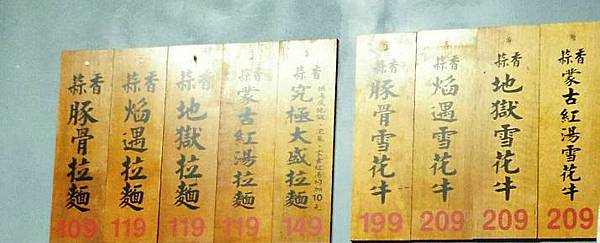 蒜香
豚骨拉麵
109
蒜香
焰遇拉麵
119
蒜香
地獄拉麵
119
蒜香
蒙古紅湯拉麵
119
蒜香
究極大盛拉麵
加10元
149
蒜香
豚骨雪花牛
199
蒜香
焰遇雪花牛
209
蒜香
地獄雪花牛
209
蒜香
蒙古紅湯雪花牛
209